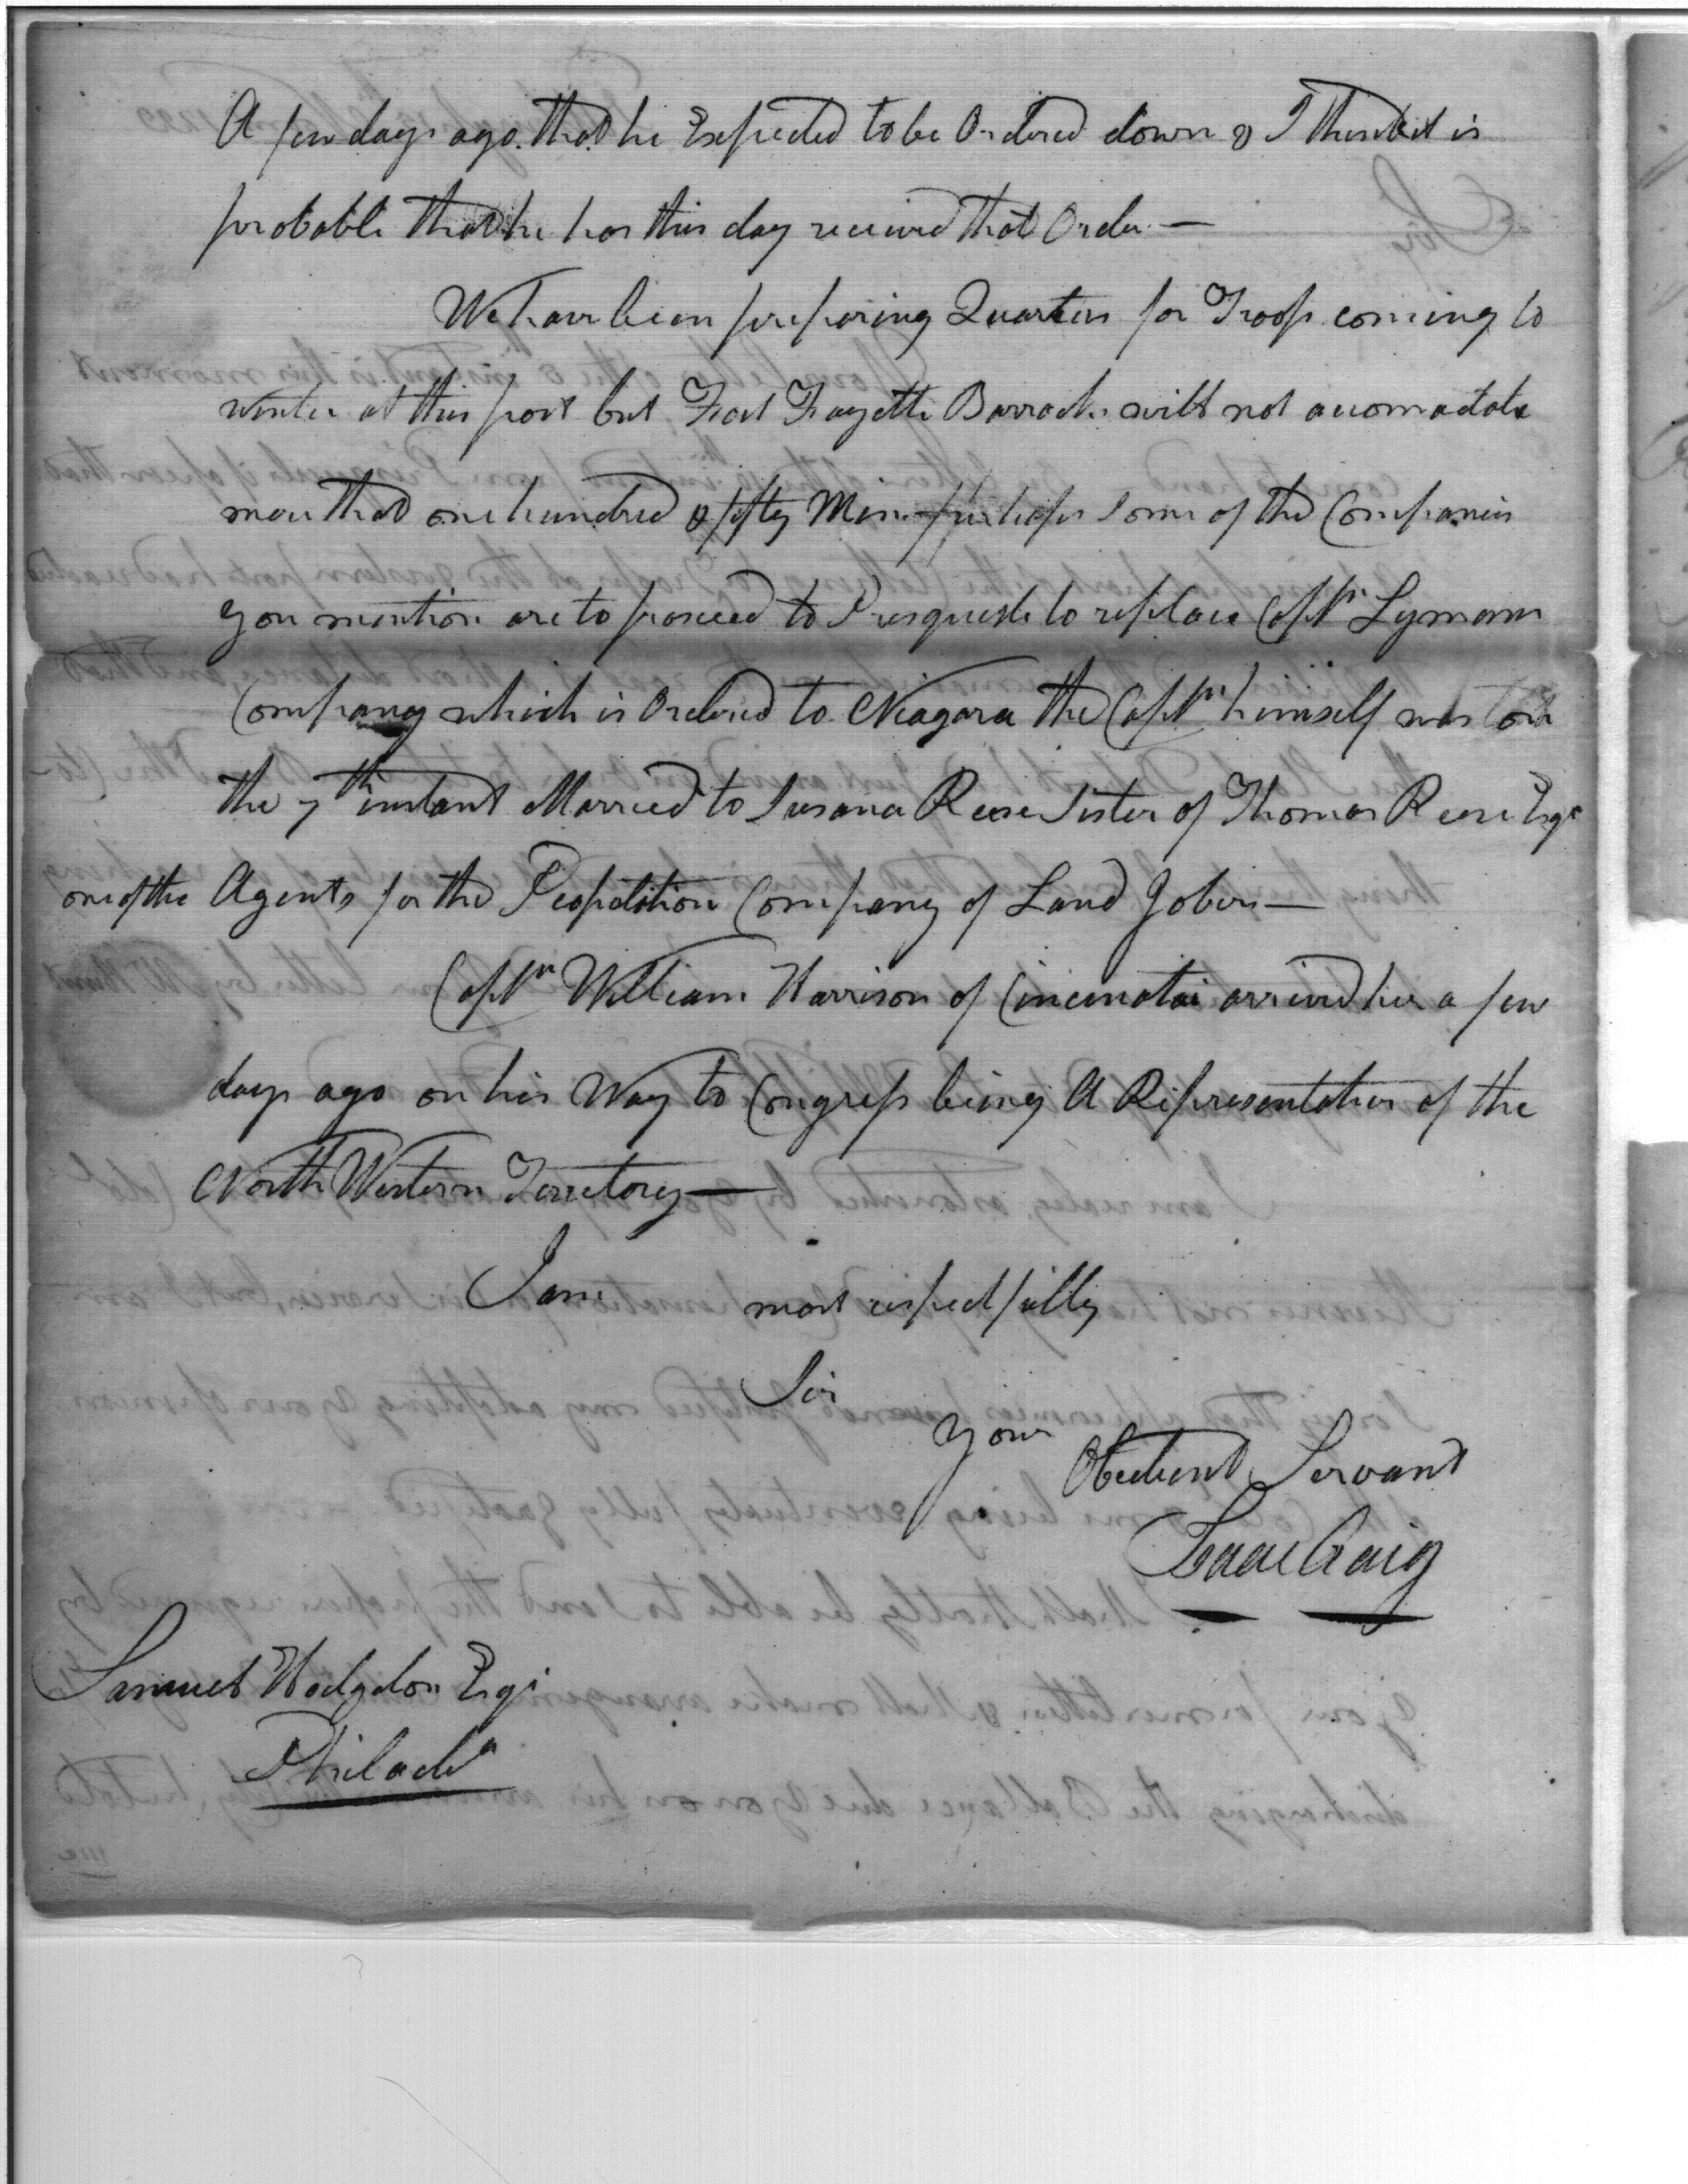 A few days ago. that he Expected to be Ordered down & I think it is
probable that he has this day received that Order —
We have been preparing Quarters for Troops coming to
winter at this post but Fort Fayette Barracks will not accomodate
more that one hundred & fifty Men perhaps some of the Companies
you mention are to proceed to Presquisle to replace Captn Lymans
Company which is Ordered to Niagara the Captn himself was on
the 7th instant Married to Susana Reese Sister of Thomas Reese Esqr
one of the Agents for the Population Company of Land Jobers —
Captn William Harrison of Cincinatai arrived here a few
days ago on his Way to Congress being A Representative of the
North Western Territory —
I am most respectfully
Sir
Your
Obedient Servant
Isaac Craig
Samuel Hodgdon Esqr
Philada